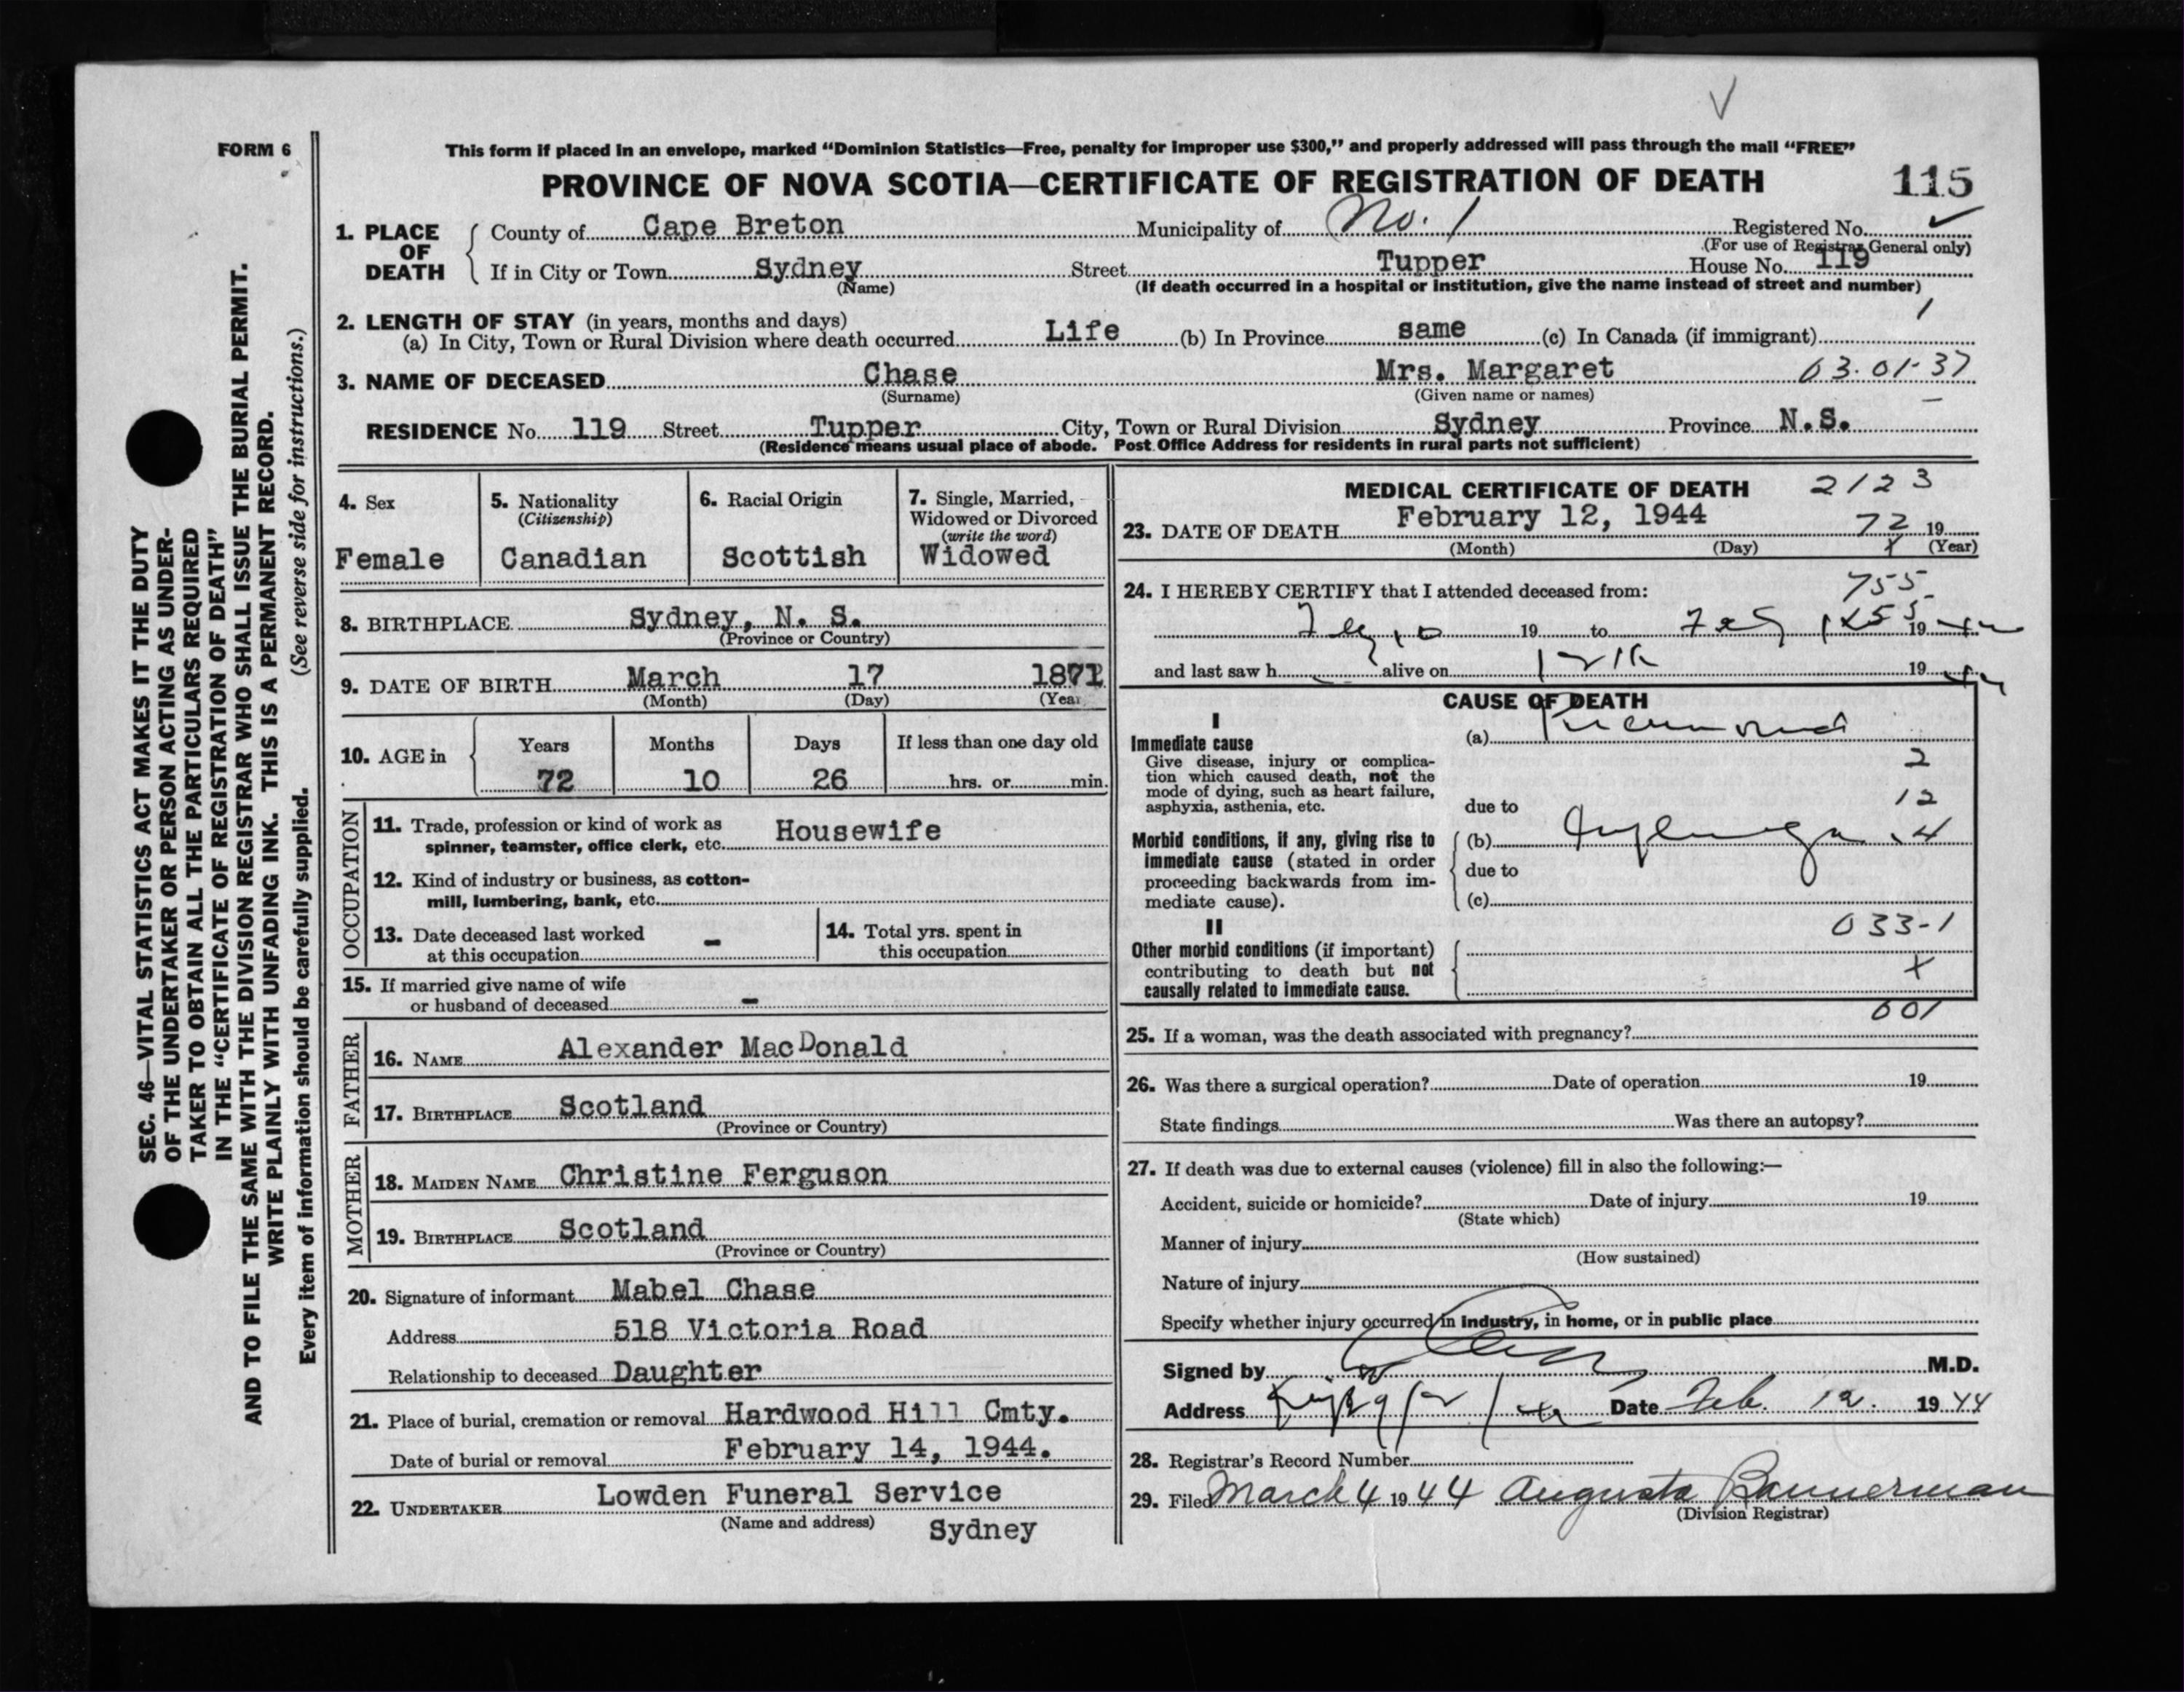 FORM 6
This form if placed in an envelope, marked “Dominion Statistics—Free, penalty for improper use $300,” and properly addressed will pass through the mail “FREE”
PROVINCE OF NOVA SCOTIA—CERTIFICATE OF REGISTRATION OF DEATH 115
1. PLACE OF DEATH
County of Cape Breton Municipality of No. 1 Registered No.
(For use of Registrar General only)
If in City or Town Sydney Street Tupper House No. 119
(Name) (If death occurred in a hospital or institution, give the name instead of street and number)
2. LENGTH OF STAY (in years, months and days) 1
(a) In City, Town or Rural Division where death occurred Life (b) In Province same (c) In Canada (if immigrant)
3. NAME OF DECEASED Chase Mrs. Margaret 03-01-37
(Surname) (Given name or names)
RESIDENCE No. 119 Street Tupper City, Town or Rural Division Sydney Province N.S.
(Residence means usual place of abode. Post Office Address for residents in rural parts not sufficient)
4. Sex
Female
5. Nationality
(Citizenship)
Canadian
6. Racial Origin
Scottish
7. Single, Married,
Widowed or Divorced
(write the word)
Widowed
8. BIRTHPLACE Sydney, N. S.
(Province or Country)
9. DATE OF BIRTH March 17 1871
(Month) (Day) (Year
10. AGE in
Years Months Days If less than one day old
72 10 26 hrs. or min.
OCCUPATION
11. Trade, profession or kind of work as
spinner, teamster, office clerk, etc. Housewife
12. Kind of industry or business, as cotton-
mill, lumbering, bank, etc.
13. Date deceased last worked
at this occupation -
14. Total yrs. spent in
this occupation
15. If married give name of wife
or husband of deceased -
FATHER
16. NAME Alexander MacDonald
17. BIRTHPLACE Scotland
(Province or Country)
MOTHER
18. MAIDEN NAME Christine Ferguson
19. BIRTHPLACE Scotland
(Province or Country)
20. Signature of informant Mabel Chase
Address 518 Victoria Road
Relationship to deceased Daughter
21. Place of burial, cremation or removal Hardwood Hill Cmty.
Date of burial or removal February 14, 1944.
22. UNDERTAKER Lowden Funeral Service
(Name and address) Sydney
MEDICAL CERTIFICATE OF DEATH 2123
23. DATE OF DEATH February 12, 1944 72 19
(Month) (Day) (Year)
24. I HEREBY CERTIFY that I attended deceased from: 755
19 to Feb 19
and last saw h alive on 12th 19
CAUSE OF DEATH
I
Immediate cause
Give disease, injury or complica-
tion which caused death, not the
mode of dying, such as heart failure,
asphyxia, asthenia, etc.
(a) Pneumonia
2
due to 12
Morbid conditions, if any, giving rise to
immediate cause (stated in order
proceeding backwards from im-
mediate cause).
(b) Influenza 4
due to
(c)
II 033-1
Other morbid conditions (if important)
contributing to death but not
causally related to immediate cause.
001
25. If a woman, was the death associated with pregnancy?
26. Was there a surgical operation? Date of operation 19
State findings Was there an autopsy?
27. If death was due to external causes (violence) fill in also the following:—
Accident, suicide or homicide? Date of injury 19
(State which)
Manner of injury
(How sustained)
Nature of injury
Specify whether injury occurred in industry, in home, or in public place
Signed by M.D.
Address Date Feb. 12. 1944
28. Registrar's Record Number
29. Filed March 4 1944 Augusta Bannerman
(Division Registrar)
SEC. 46—VITAL STATISTICS ACT MAKES IT THE DUTY
OF THE UNDERTAKER OR PERSON ACTING AS UNDER-
TAKER TO OBTAIN ALL THE PARTICULARS REQUIRED
IN THE “CERTIFICATE OF REGISTRATION OF DEATH”
AND TO FILE THE SAME WITH THE DIVISION REGISTRAR WHO SHALL ISSUE THE BURIAL PERMIT.
WRITE PLAINLY WITH UNFADING INK. THIS IS A PERMANENT RECORD.
Every item of information should be carefully supplied. (See reverse side for instructions.)